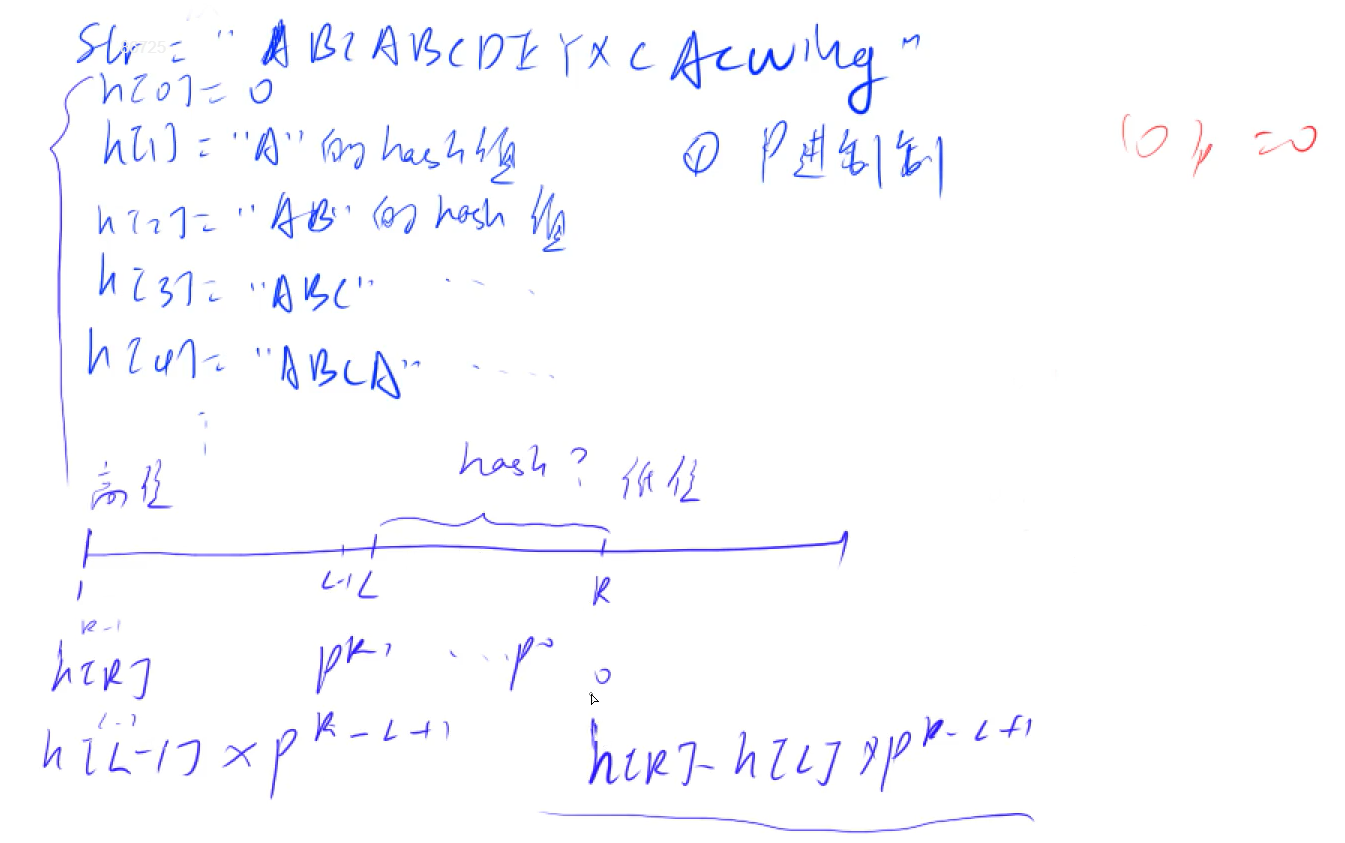 Str = "ABCABCDEYXCAcwing"
h[0] = 0
h[1] = "A" 的 hash 值
① P进制制
(0)p = 0
h[2] = "AB" 的 hash 值
h[3] = "ABC" ......
h[4] = "ABCA" ......
hash?
高位
低位
1 L-1 L R
R-1
h[R] p^(R-1) ... p^0 0
L-1
h[L-1] × p^(R-L+1)
h[R] - h[L] × p^(R-L+1)